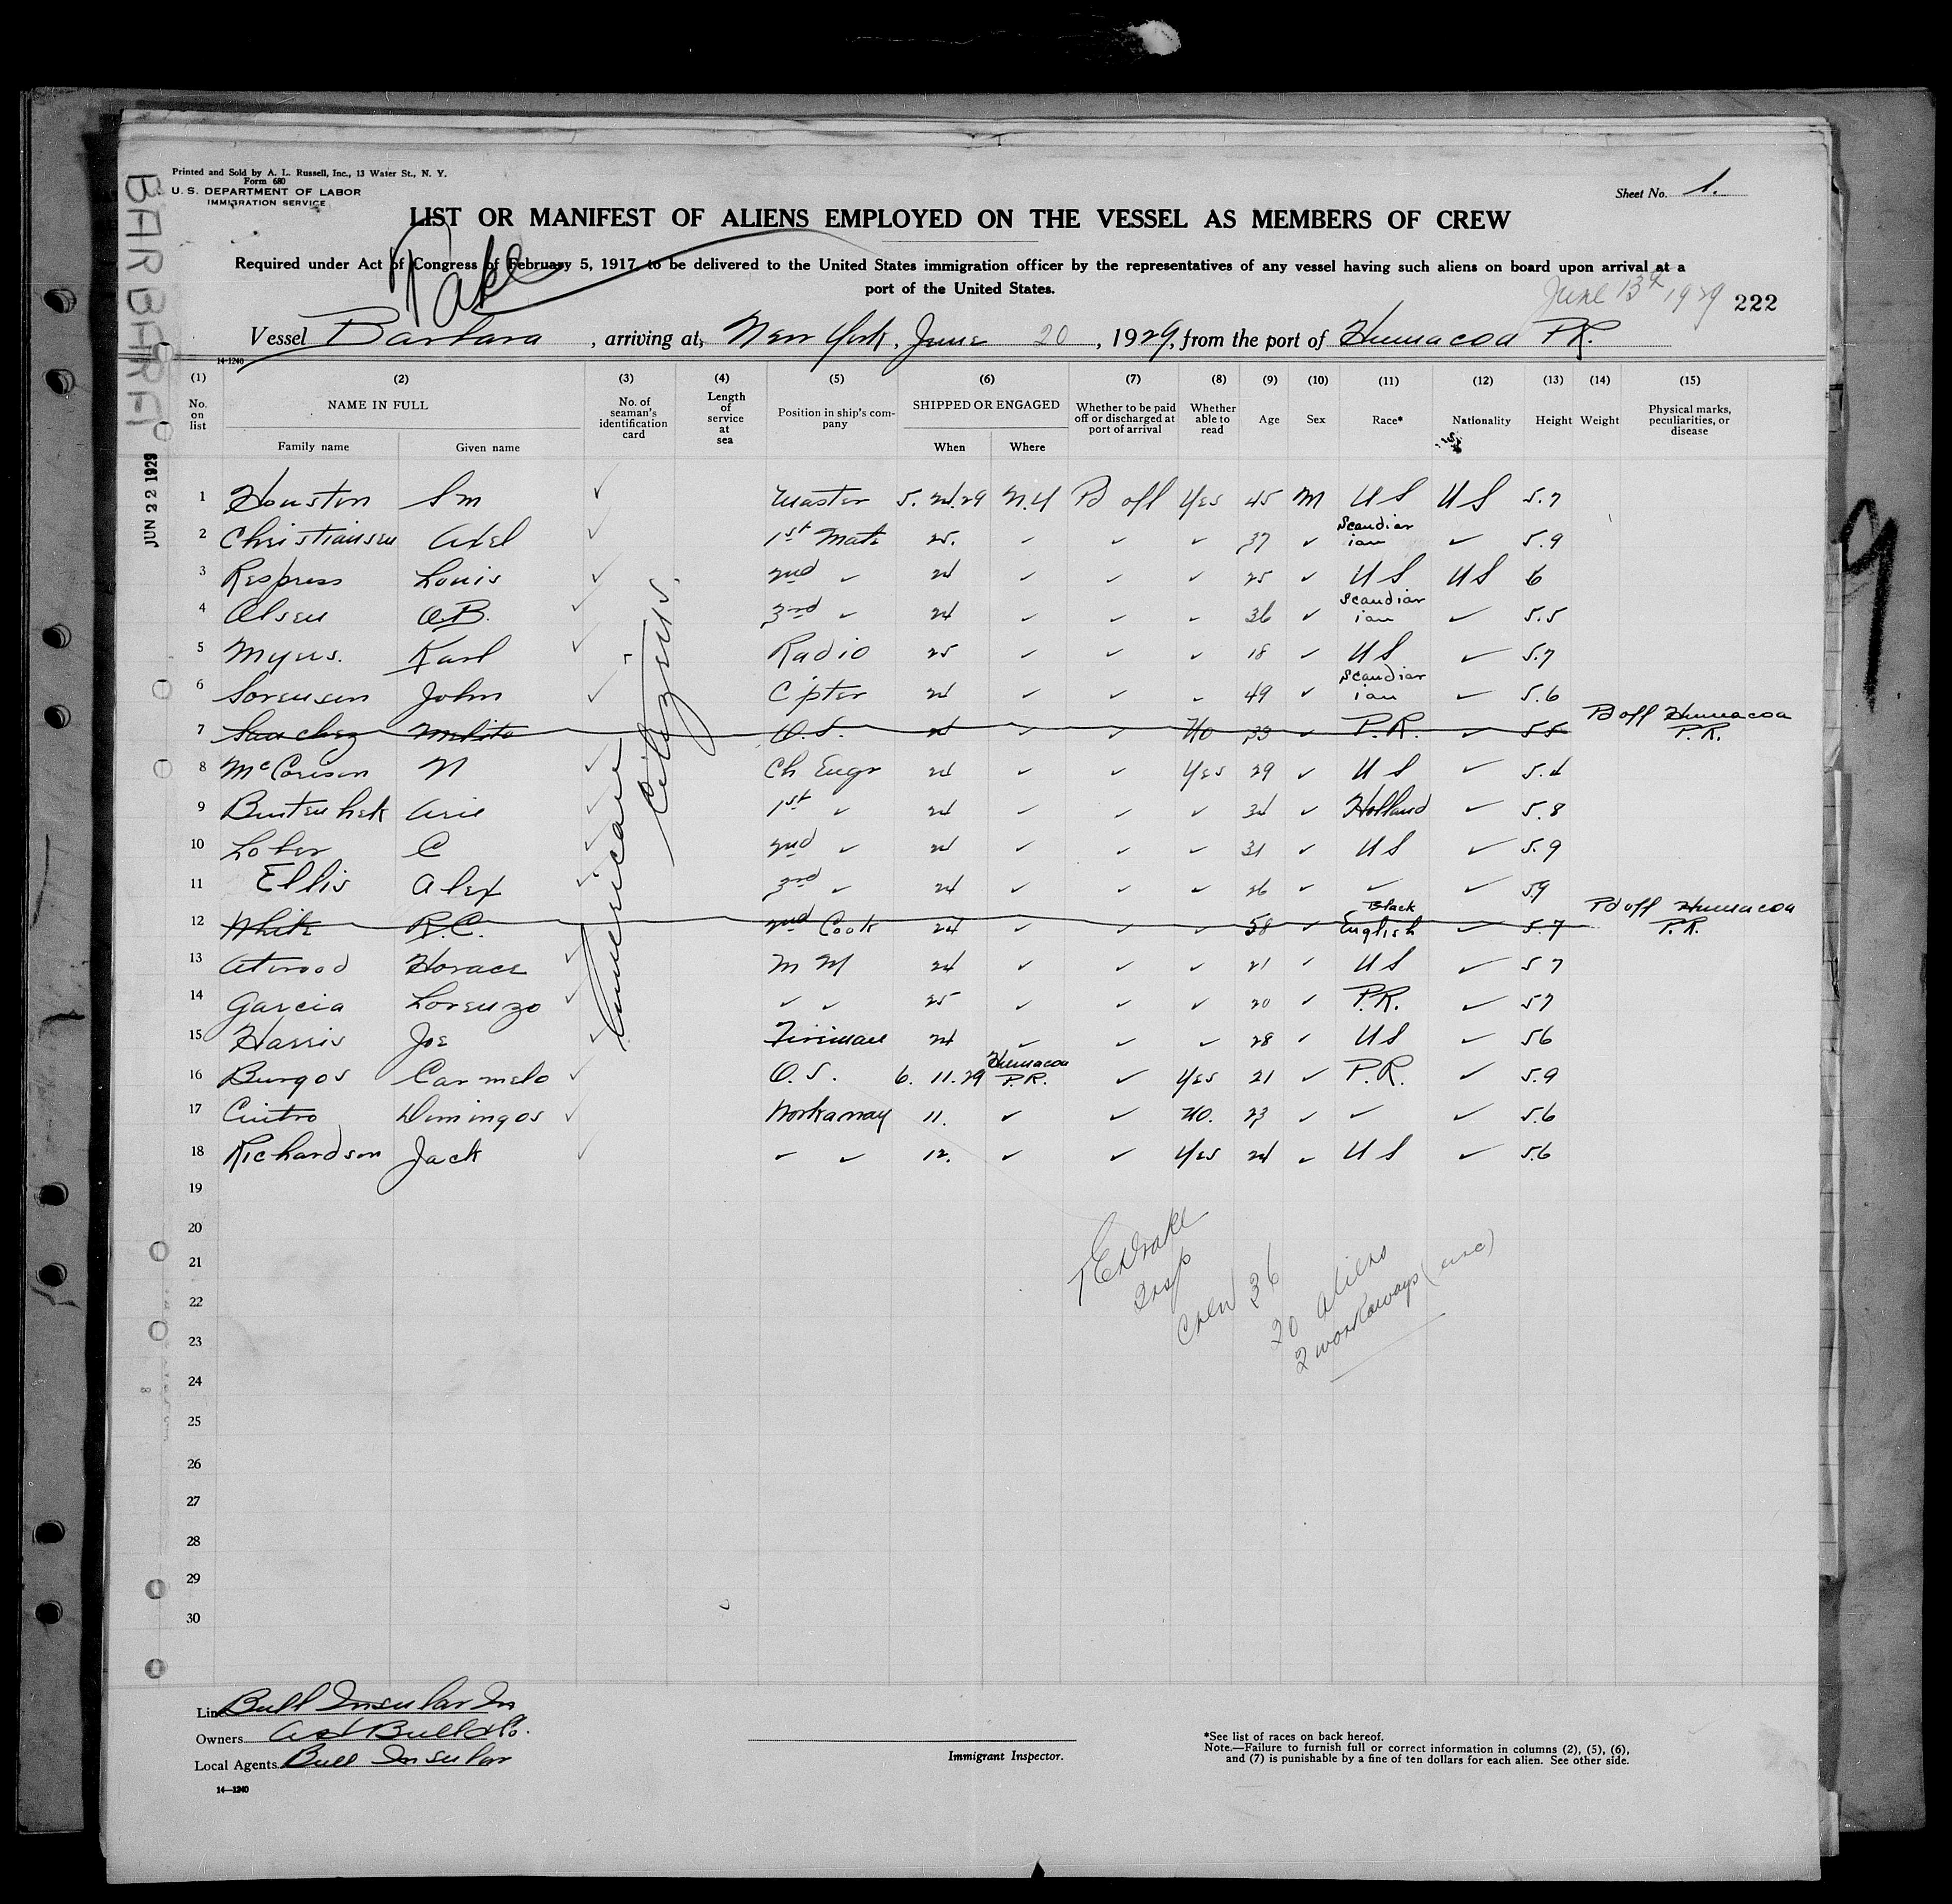 Printed and Sold by A. L. Russell, Inc., 13 Water St., N. Y.
Form 680
U. S. DEPARTMENT OF LABOR
IMMIGRATION SERVICE
Sheet No. 1.
BARBARA
JUN 22 1929
LIST OR MANIFEST OF ALIENS EMPLOYED ON THE VESSEL AS MEMBERS OF CREW
Required under Act of Congress of February 5, 1917, to be delivered to the United States immigration officer by the representatives of any vessel having such aliens on board upon arrival at a
port of the United States.
June 13th 1929 222
Vessel Barbara, arriving at, New York, June 20, 1929, from the port of Humacoa P.R.
14-1240
(1) (2) (3) (4) (5) (6) (7) (8) (9) (10) (11) (12) (13) (14) (15)
No. on list NAME IN FULL No. of seaman's identification card Length of service at sea Position in ship's company SHIPPED OR ENGAGED Whether to be paid off or discharged at port of arrival Whether able to read Age Sex Race* Nationality Height Weight Physical marks, peculiarities, or disease
Family name Given name When Where
American Citizens.
1 Houston Sm ✓ Master 5. 24.29 N.Y Pd off Yes 45 M U S U S 5.7
2 Christiansen Axel ✓ 1st Mate 25. ✓ ✓ ✓ 37 ✓ Scandian ian ✓ 5.9
3 Respress Louis ✓ 2nd ✓ 24 ✓ ✓ ✓ 25 ✓ U S U S 6
4 Olsen O.B. ✓ 3rd ✓ 24 ✓ ✓ ✓ 36 ✓ Scandian ian ✓ 5.5
5 Myers. Karl ✓ Radio 25 ✓ ✓ ✓ 18 ✓ U S ✓ 5.7
6 Sorensen John ✓ C'pter 24 ✓ ✓ ✓ 49 ✓ Scandian ian ✓ 5.6
7 Sanchez Melito O.S. 24 ✓ ✓ No 33 ✓ P.R. ✓ 5 5 Pd off Humacoa P.R.
8 McCorison N ✓ Ch Engr 24 ✓ ✓ Yes 29 ✓ U S ✓ 5.4
9 Buitenhek Arie ✓ 1st ✓ 24 ✓ ✓ ✓ 34 ✓ Holland ✓ 5.8
10 Lober C ✓ 2nd ✓ 24 ✓ ✓ ✓ 31 ✓ U S ✓ 5.9
11 Ellis Alex ✓ 3rd ✓ 24 ✓ ✓ ✓ 26 ✓ ✓ ✓ 59
12 White R.C. 2nd Cook 24 ✓ ✓ ✓ 58 ✓ Black English ✓ 5.7 Pd off Humacoa P.R.
13 Atwood Horace ✓ M M 24 ✓ ✓ ✓ 21 ✓ U S ✓ 5 7
14 Garcia Lorenzo ✓ ✓ ✓ 25 ✓ ✓ ✓ 20 ✓ P.R. ✓ 57
15 Harris Joe ✓ Fireman 24 ✓ ✓ ✓ 28 ✓ U S ✓ 56
16 Burgos Carmelo ✓ O.S. 6. 11.29 Humacoa P.R. ✓ Yes 21 ✓ P.R. ✓ 5.9
17 Cintro Domingos ✓ Workaway 11. ✓ ✓ No. 23 ✓ ✓ ✓ 5.6
18 Richardson Jack ✓ ✓ ✓ 12. ✓ ✓ Yes 24 ✓ U S ✓ 5.6
19
20
21
22
23
24
25
26
27
28
29
30
T E Drake
Insp
Crew 36
20 aliens
2 workaways (inc)
Line Bull Insular Ln
Owners A H Bull & Co.
Local Agents Bull Insular
14—1240
Immigrant Inspector.
*See list of races on back hereof.
Note.—Failure to furnish full or correct information in columns (2), (5), (6),
and (7) is punishable by a fine of ten dollars for each alien. See other side.
9